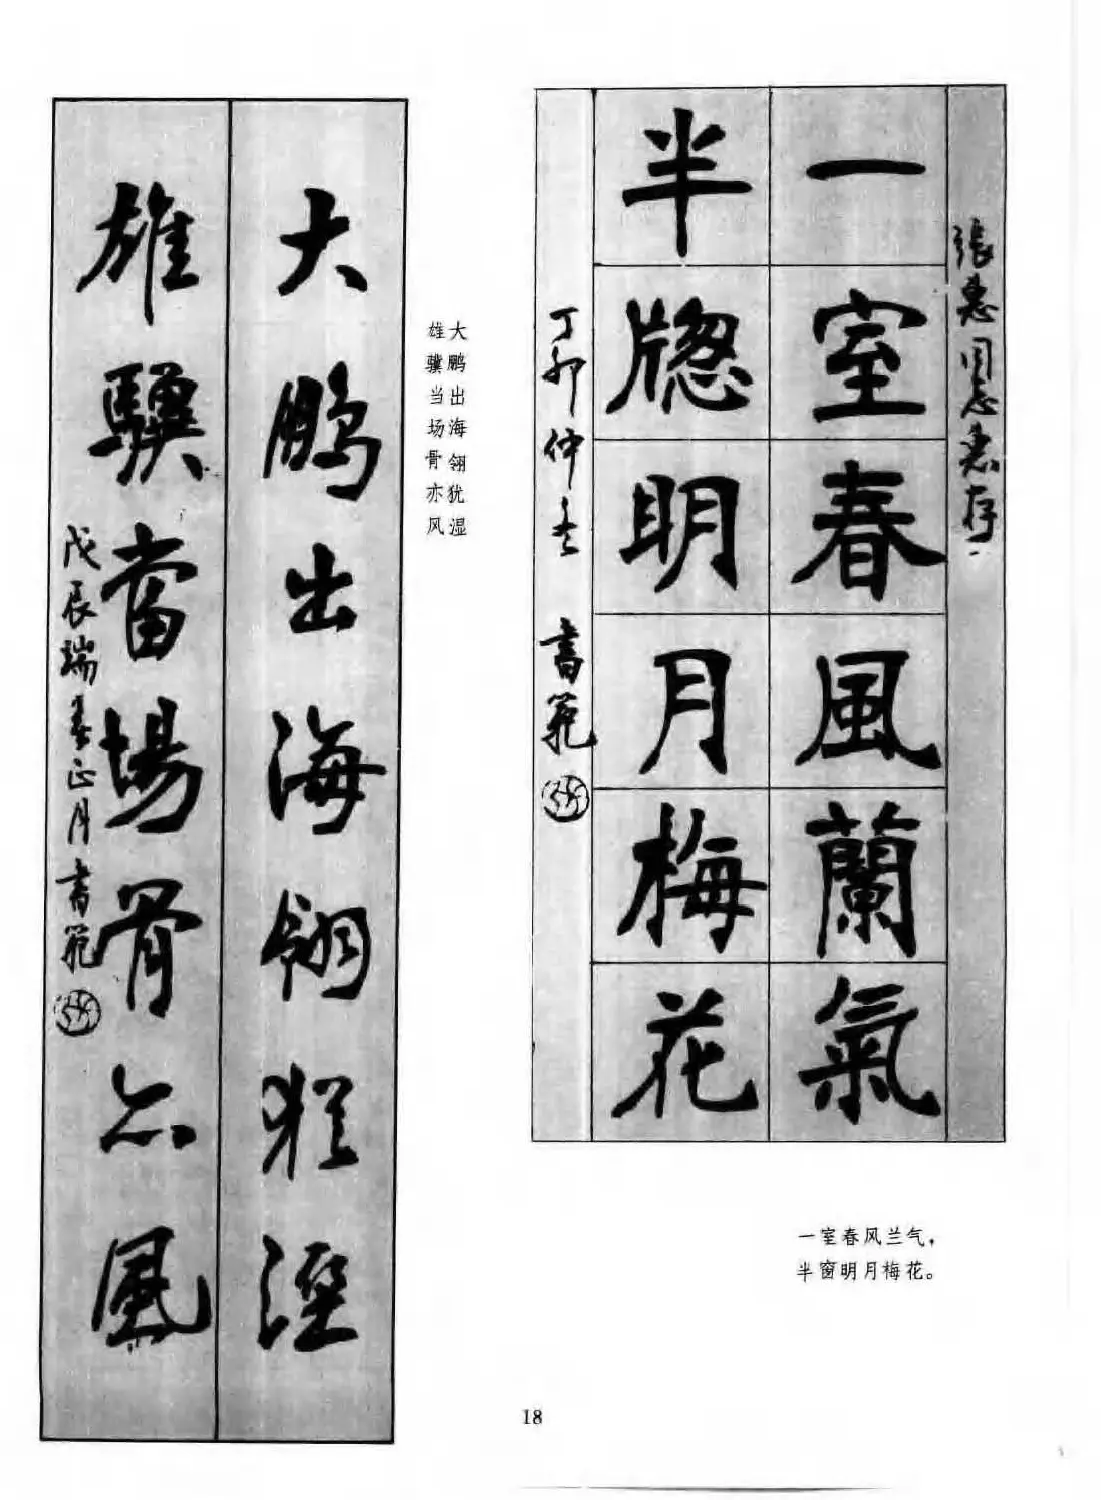 張惠同志惠存
一室春風蘭氣
半牕明月梅花
丁卯仲冬 書範
一室春风兰气，
半窗明月梅花。
大鵬出海翎猶溼
雄驥當場骨亦風
戊辰端春正月書範
大鹏出海翎犹湿
雄骥当场骨亦风
18